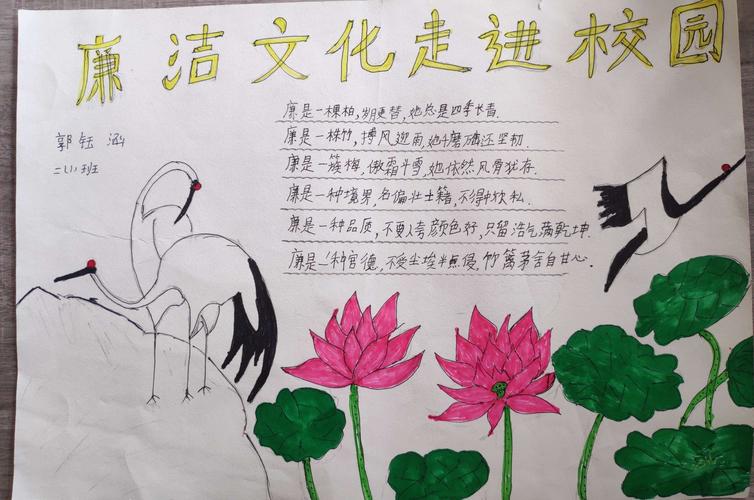 廉洁文化走进校园
郭钰涵
二(1)班
廉是一棵柏,岁月更替,她总是四季长青.
廉是一株竹,搏风迎雨,她千磨万励还坚韧.
廉是一簇梅,傲霜斗雪,她依然风骨犹存.
廉是一种境界,名偏壮士籍,不得中饮私.
廉是一种品质,不要人夸颜色好,只留浩气满乾坤.
廉是一种官德,不受尘埃半点侵,竹篱茅舍自甘心.